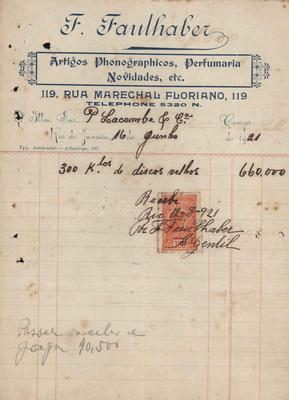 F. Faulhaber
Artigos Phonographicos, Perfumaria
Novidades, etc.
119, RUA MARECHAL FLORIANO, 119
TELEPHONE 5320 N.
Illmo. Snr. P Lacombe & Cia Comprou
Rio de Janeiro, 16 de Junho de 1921
Typ. Alfandega,
300 Klos de discos velhos 660.000
Recebi
Rio 921
F Faulhaber
Gentil
Passar recibo e
pagar 90,500